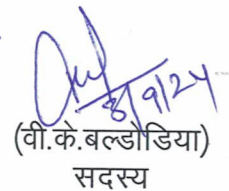 8/9/24
(वी.के.बल्डोडिया)
सदस्य